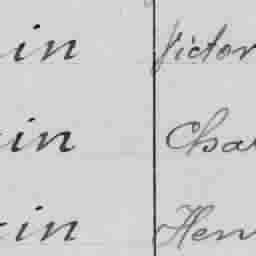 in Victor
in Cha
in Hen